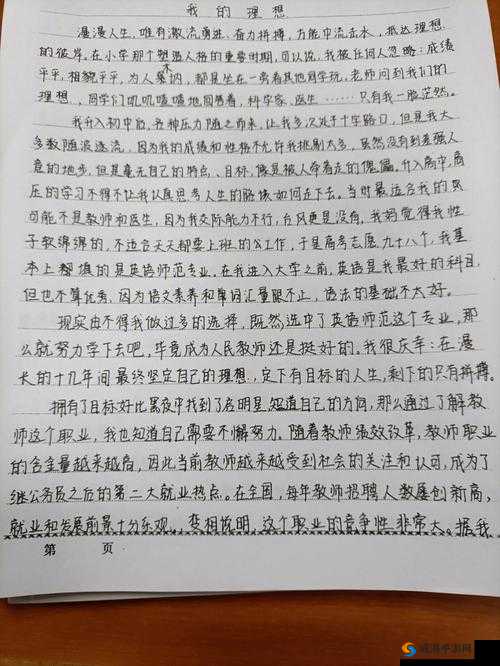 我的理想
漫漫人生，唯有激流勇进，奋力拼搏，方能中流击水，抵达理想
的彼岸。在小学那个塑造人格的重要时期，可以说，我被任何人忽略：成绩
平平，相貌平平，为人木讷，都是坐在一旁看其他同学玩，老师问到我们的
理想，同学们叽叽喳喳地回答着，科学家、医生……只有我一脸茫然。
我升入初中后，各种压力随之而来，让我多次处于十字路口，但是我大
多数随波逐流，因为我的成绩和性格不允许我挑剔太多，虽然没有到差强人
意的地步，但是毫无自己的特点、目标，像是被人牵着走的傀儡。升入高中，高
压的学习不得不让我认真思考人生的路该如何走下去。当时最适合我的职
可能不是教师和医生，因为我交际能力不行，台风更是没有，我妈觉得我性
子软绵绵的，不适合天天都要上班的工作，于是高考志愿九十八个，我基
本上都填的是英语师范专业，在我进入大学之前，英语是我最好的科目，
但也不算优秀，因为语文素养和单词汇量跟不止，语法的基础不太好。
现实由不得我做过多的选择，既然选中了英语师范这个专业，那
么就努力学下去吧，毕竟成为人民教师还是挺好的。我很庆幸：在漫
长的十几年间最终坚定自己的理想，定下有目标的人生，剩下的只有拼搏。
拥有了目标好比黑夜中找到了启明星，知道自己的方向，那么通过了解教
师这个职业，我也知道自己需要不懈努力。随着教师绩效改革，教师职业
的含金量越来越高，因此当前教师越来越受到社会的关注和认可，成为了
继公务员之后的第二大就业热点。在全国，每年教师招聘人数屡创新高，
就业和发展前景十分乐观，变相说明，这个职业的竞争性非常大。据我
第 页